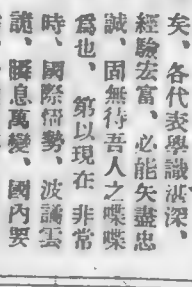 矣、各代表學識湛深、
經驗宏富、必能矢盡忠
誠、固無待吾人之喋喋
爲也、第以現在非常
時、國際情勢、波譎雲
詭、瞬息萬變、國內要